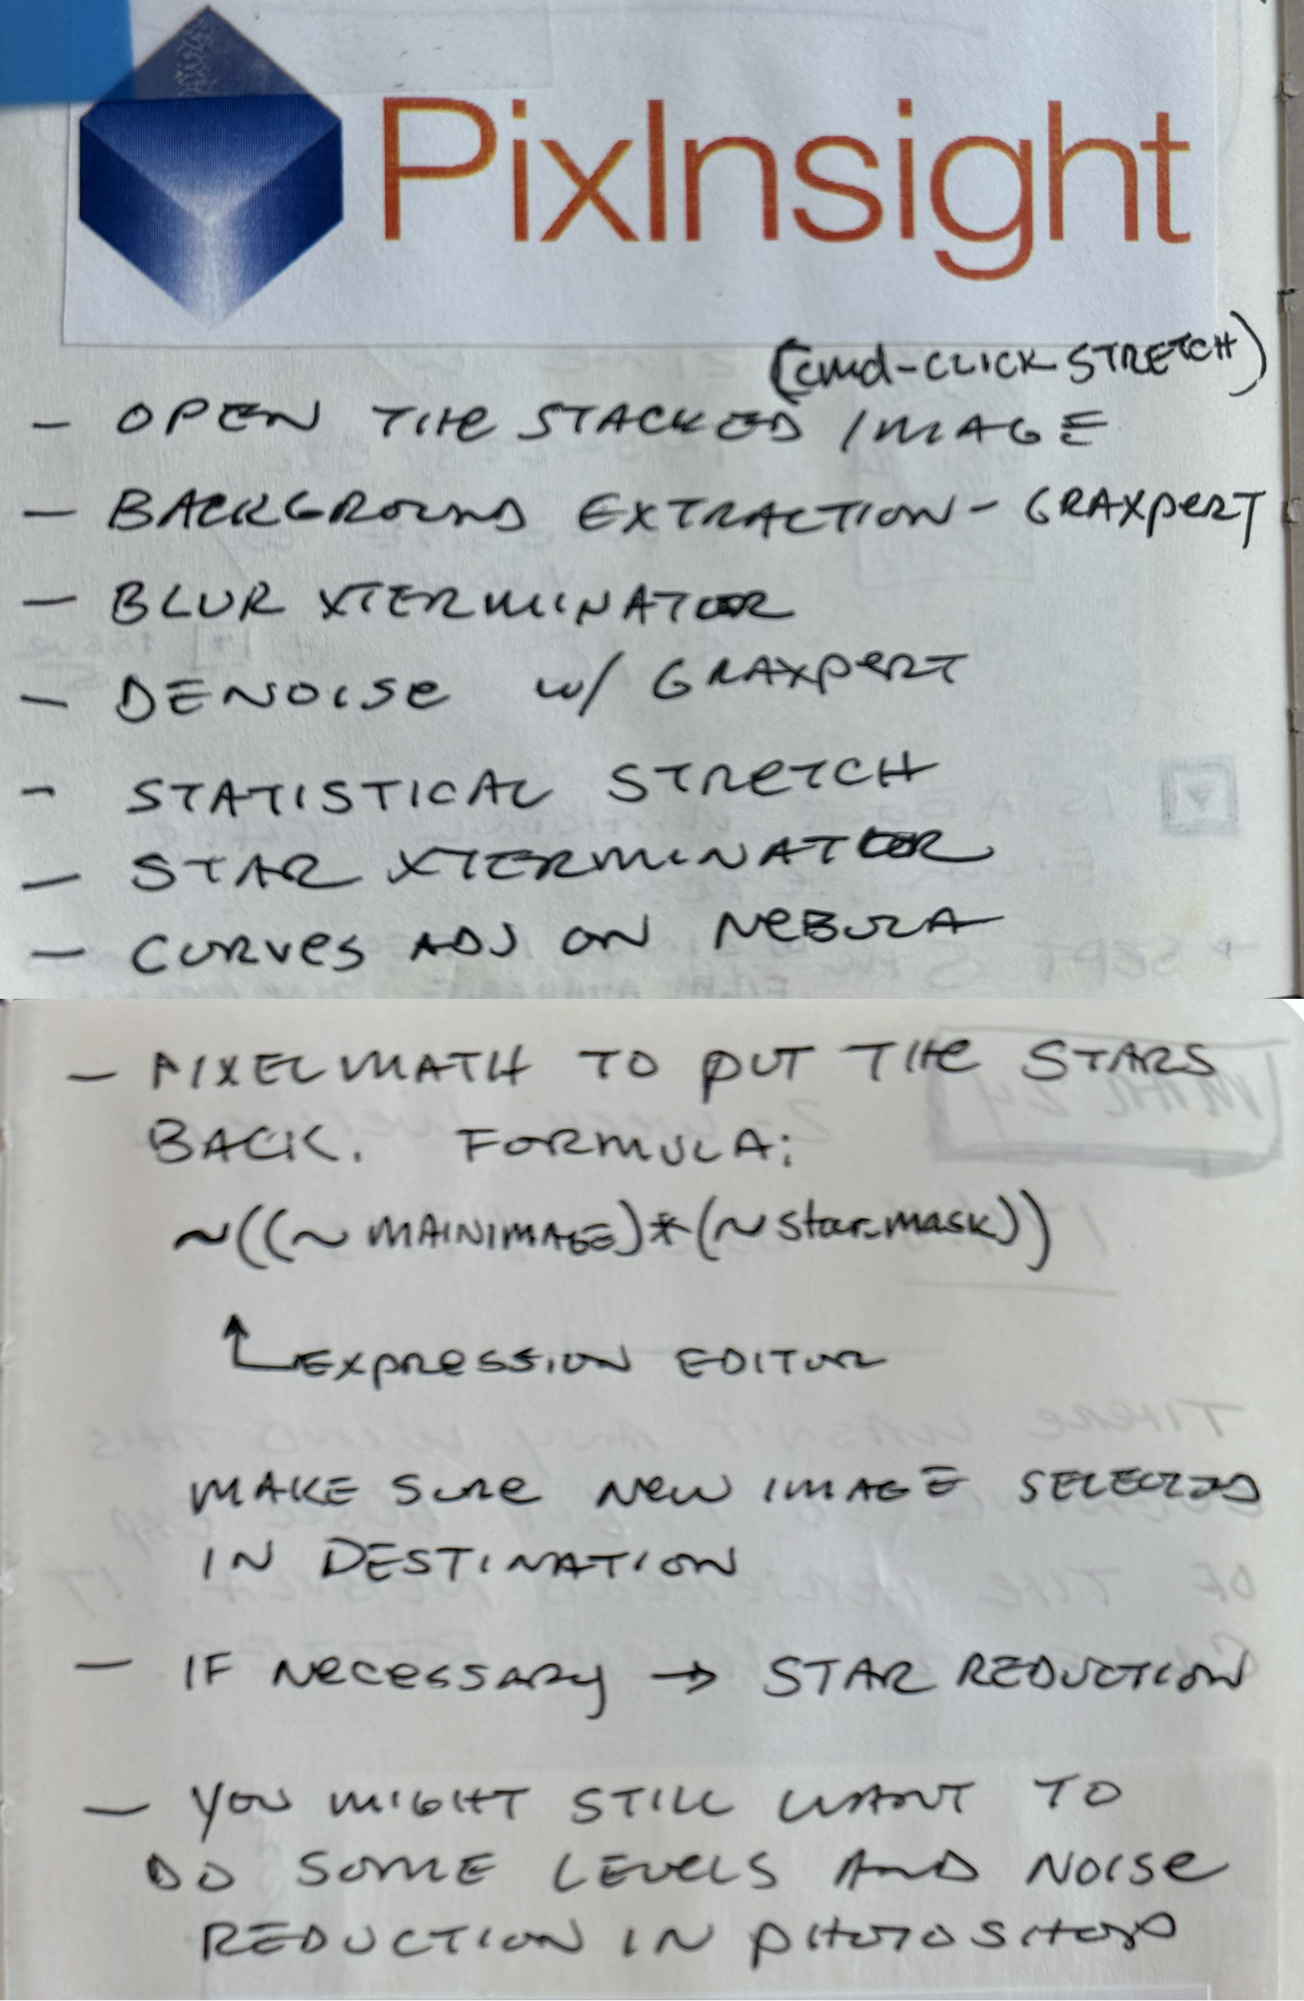 PixInsight
(cmd-CLICK STRETCH)
- OPEN THE STACKED IMAGE
- BACKGROUND EXTRACTION - GRAXPERT
- BLUR XTERMINATOR
- DENOISE w/ GRAXPERT
- STATISTICAL STRETCH
- STAR XTERMINATOR
- CURVES ADJ ON NEBULA
- PIXELMATH TO PUT THE STARS
BACK. FORMULA:
~((~ MAINIMAGE)*(~ star_mask))
EXPRESSION EDITOR
MAKE SURE NEW IMAGE SELECTED
IN DESTINATION
- IF NECESSARY → STAR REDUCTION
- YOU MIGHT STILL WANT TO
DO SOME LEVELS AND NOISE
REDUCTION IN PHOTOSHOP